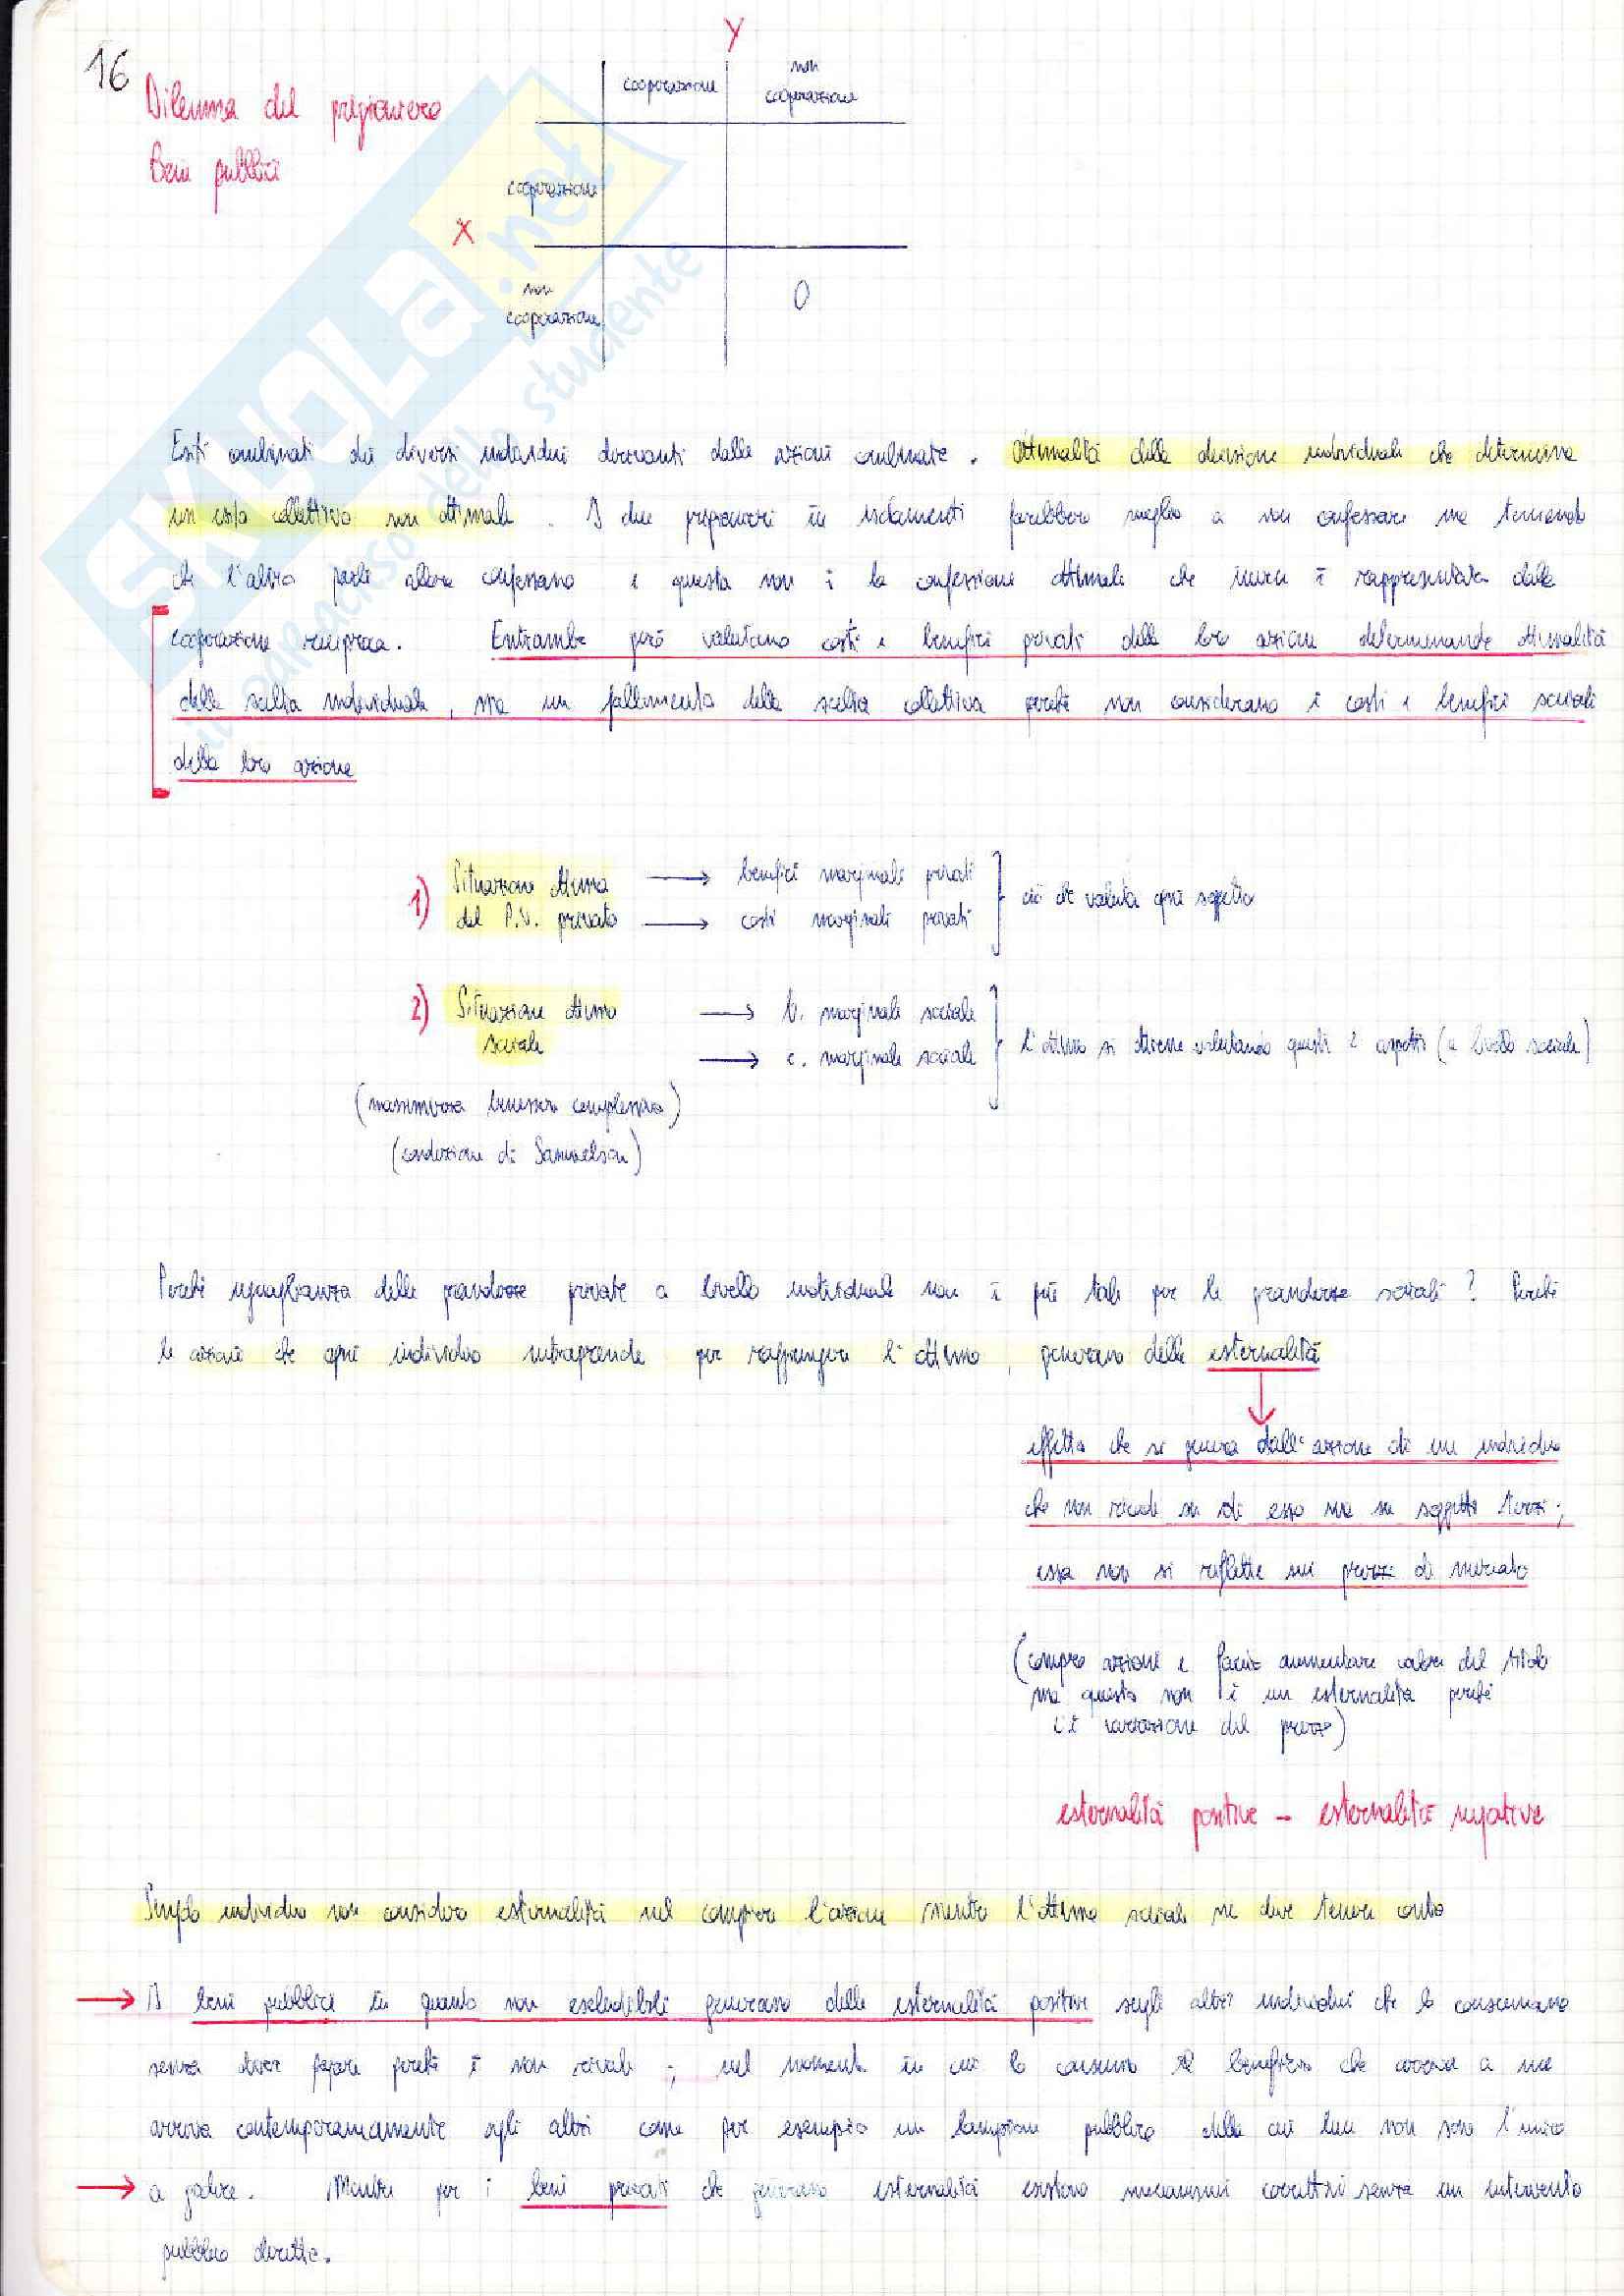 16
Dilemma del prigioniero
Beni pubblici
Y
cooperazione
non
cooperazione
cooperazione
X
non
cooperazione
0
SKUOLA.net
il paradiso dello studente
Esiti combinati dei diversi individui derivanti dalle azioni combinate. Ottimalità della decisione individuale che determina
un esito collettivo non ottimale. I due prigionieri in isolamenti farebbero meglio a non confessare ma temendo
che l'altro parli allora confessano e questa non è la confessione ottimale che invece è rappresentata dalla
cooperazione reciproca. Entrambi però valutano costi e benefici privati della loro azione determinando ottimalità
della scelta individuale, ma un fallimento della scelta collettiva perché non considerano i costi e benefici sociali
della loro azione
1) Situazione ottima → benefici marginali privati
del P.V. privato → costi marginali privati
ciò che valuta ogni soggetto
2) Situazione ottima → b. marginale sociale
sociale → c. marginale sociale
l'ottimo si ottiene valutando questi 2 aspetti (a livello sociale)
(massimizza benessere complessivo)
(condizione di Samuelson)
Perché uguaglianza delle grandezze private a livello individuale non è più tale per le grandezze sociali? Perché
le azioni che ogni individuo intraprende per raggiungere l'ottimo, generano delle esternalità
effetto che si genera dall'azione di un individuo
che non ricade su di esso ma su soggetti terzi;
essa non si riflette sui prezzi di mercato
(compro azioni e faccio aumentare valore del titolo
ma questa non è un esternalità perché
c'è variazione del prezzo)
esternalità positive - esternalità negative
Singolo individuo non considera esternalità nel compiere l'azione mentre l'ottimo sociale ne deve tenere conto
→ I beni pubblici in quanto non escludibili generano delle esternalità positive sugli altri individui che lo consumano
senza dover pagare perché è non rivale; nel momento in cui lo consumo il beneficio che arriva a me
arriva contemporaneamente agli altri come per esempio un lampione pubblico della cui luce non sono l'unico
→ a godere. Mentre per i beni privati che generano esternalità esistono meccanismi correttivi senza un intervento
pubblico diretto.